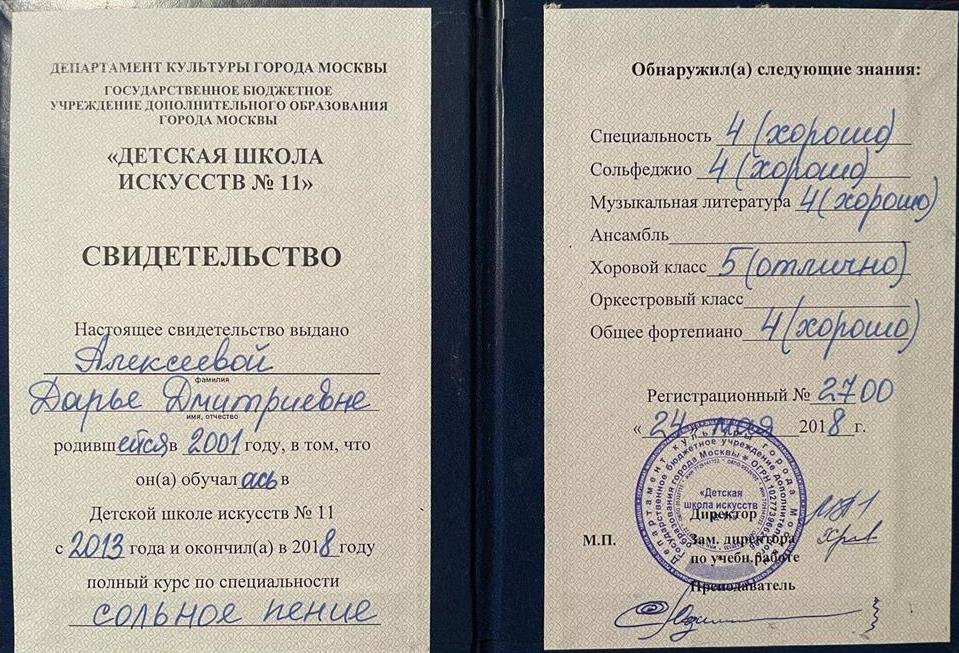 ДЕПАРТАМЕНТ КУЛЬТУРЫ ГОРОДА МОСКВЫ
ГОСУДАРСТВЕННОЕ БЮДЖЕТНОЕ
УЧРЕЖДЕНИЕ ДОПОЛНИТЕЛЬНОГО ОБРАЗОВАНИЯ
ГОРОДА МОСКВЫ
«ДЕТСКАЯ ШКОЛА
ИСКУССТВ № 11»
СВИДЕТЕЛЬСТВО
Настоящее свидетельство выдано
Алексеевой
фамилия
Дарье Дмитриевне
имя, отчество
родившейся в 2001 году, в том, что
он(а) обучалась в
Детской школе искусств № 11
с 2013 года и окончил(а) в 2018 году
полный курс по специальности
сольное пение
Обнаружил(а) следующие знания:
Специальность 4 (хорошо)
Сольфеджио 4 (хорошо)
Музыкальная литература 4 (хорошо)
Ансамбль
Хоровой класс 5 (отлично)
Оркестровый класс
Общее фортепиано 4 (хорошо)
Регистрационный № 2700
« 24 » мая 2018 г.
Департамент культуры города Москвы
Государственное бюджетное учреждение дополнительного
образования города Москвы
«Детская
школа искусств
М.П.
Директор
Зам. директора
по учебн.работе
Преподаватель